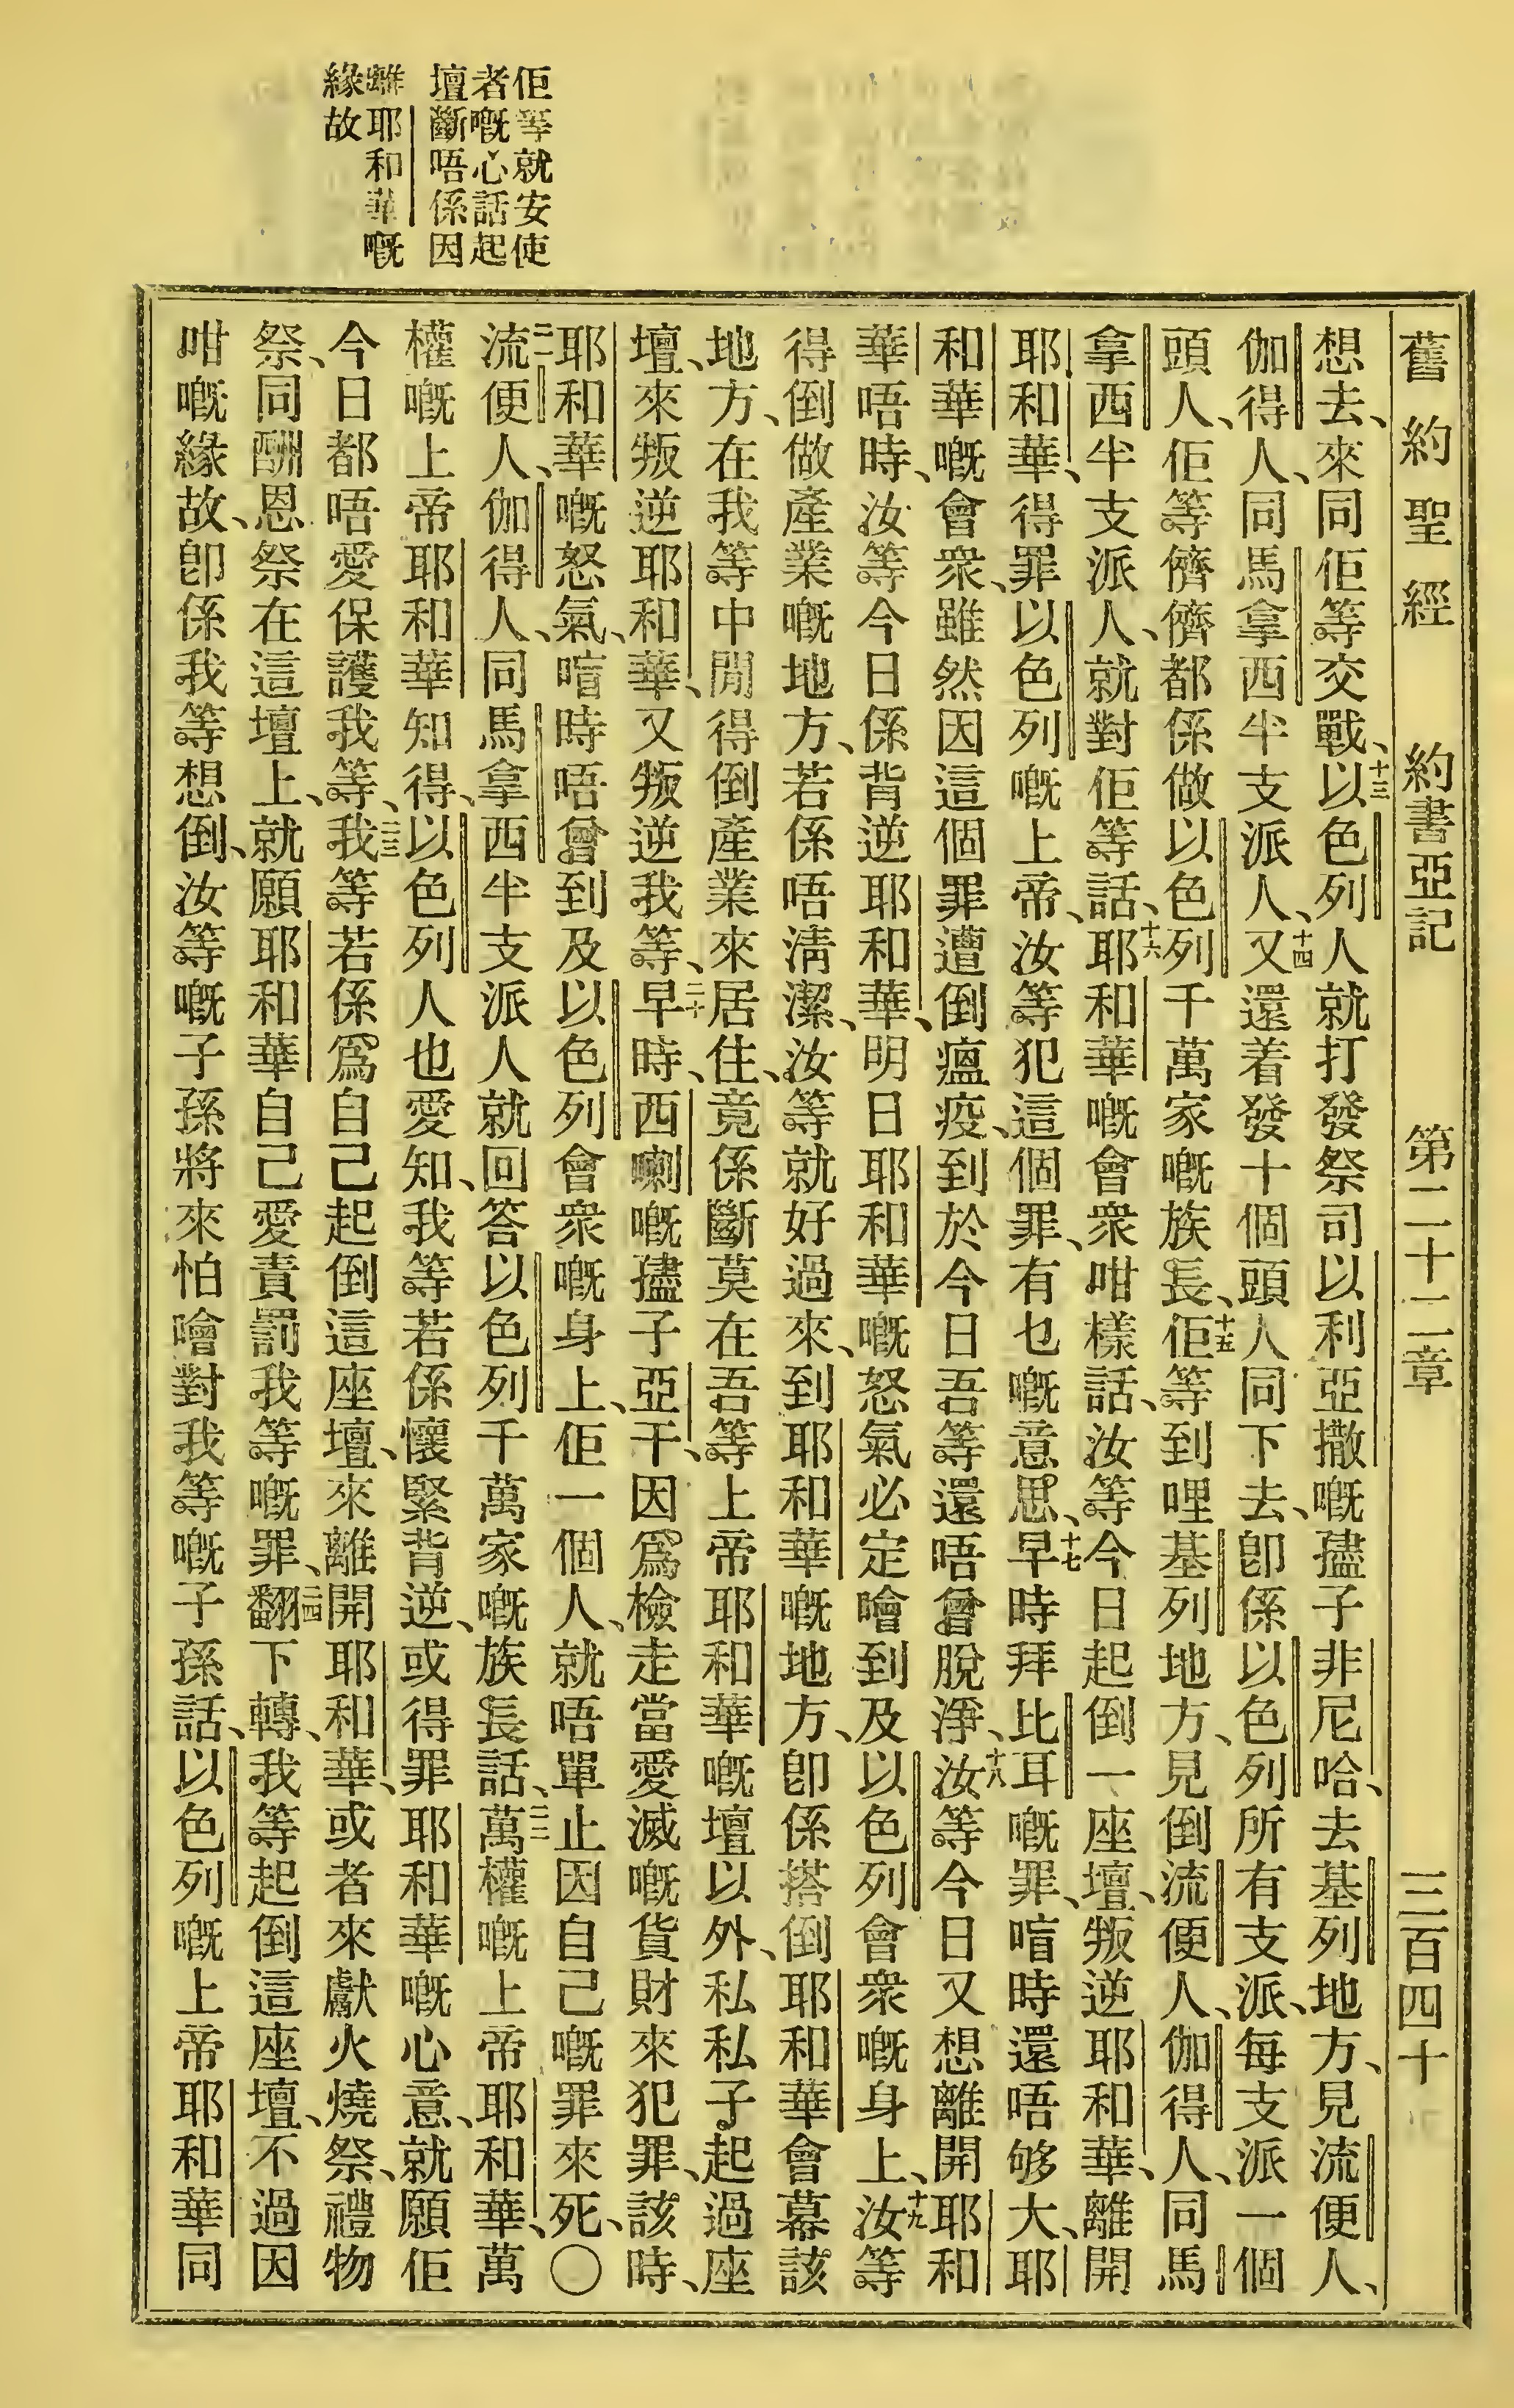 舊約聖經 約書亞記 第二十二章 三百四十
想去、來同佢等交戰、十三以色列人就打發祭司以利亞撒嘅孻子非尼哈、去基列地方、見流便人、
伽得人、同馬拿西半支派人、十四又還着發十個頭人同下去、卽係以色列所有支派、每支派一個
頭人、佢等儕儕都係做以色列千萬家嘅族長、十五佢等到哩基列地方、見倒流便人、伽得人、同馬
拿西半支派人、就對佢等話、十六耶和華嘅會衆咁樣話、汝等今日起倒一座壇、叛逆耶和華、離開
耶和華、得罪以色列嘅上帝、汝等犯這個罪、有乜嘅意思、十七早時拜比耳嘅罪、喑時還唔够大、耶
和華嘅會衆、雖然因這個罪遭倒瘟疫、到於今日吾等還唔曾脫淨、十八汝等今日又想離開耶和
華唔時、汝等今日係背逆耶和華、明日耶和華嘅怒氣必定噲到及以色列會衆嘅身上、十九汝等
得倒做產業嘅地方、若係唔淸潔、汝等就好過來、到耶和華嘅地方、卽係搭倒耶和華會幕該
地方、在我等中間得倒產業來居住、竟係斷莫在吾等上帝耶和華嘅壇以外、私私子起過座
壇、來叛逆耶和華、又叛逆我等、二十早時、西喇嘅孻子亞干、因爲檢走當愛滅嘅貨財來犯罪、該時、
耶和華嘅怒氣、喑時唔曾到及以色列會衆嘅身上、佢一個人、就唔單止因自己嘅罪來死、〇
二一流便人、伽得人、同馬拿西半支派人就回答以色列千萬家嘅族長話、二二萬權嘅上帝耶和華、萬
權嘅上帝耶和華知得、以色列人也愛知、我等若係懷緊背逆、或得罪耶和華嘅心意、就願佢
今日都唔愛保護我等、二三我等若係爲自己起倒這座壇、來離開耶和華、或者來獻火燒祭、禮物
祭、同酬恩祭在這壇上、就願耶和華自己愛責罰我等嘅罪、二四翻下轉、我等起倒這座壇、不過因
咁嘅緣故、卽係我等想倒、汝等嘅子孫將來怕噲對我等嘅子孫話、以色列嘅上帝耶和華同
佢等就安使
者嘅心話起
壇斷唔係因
離耶和華嘅
緣故